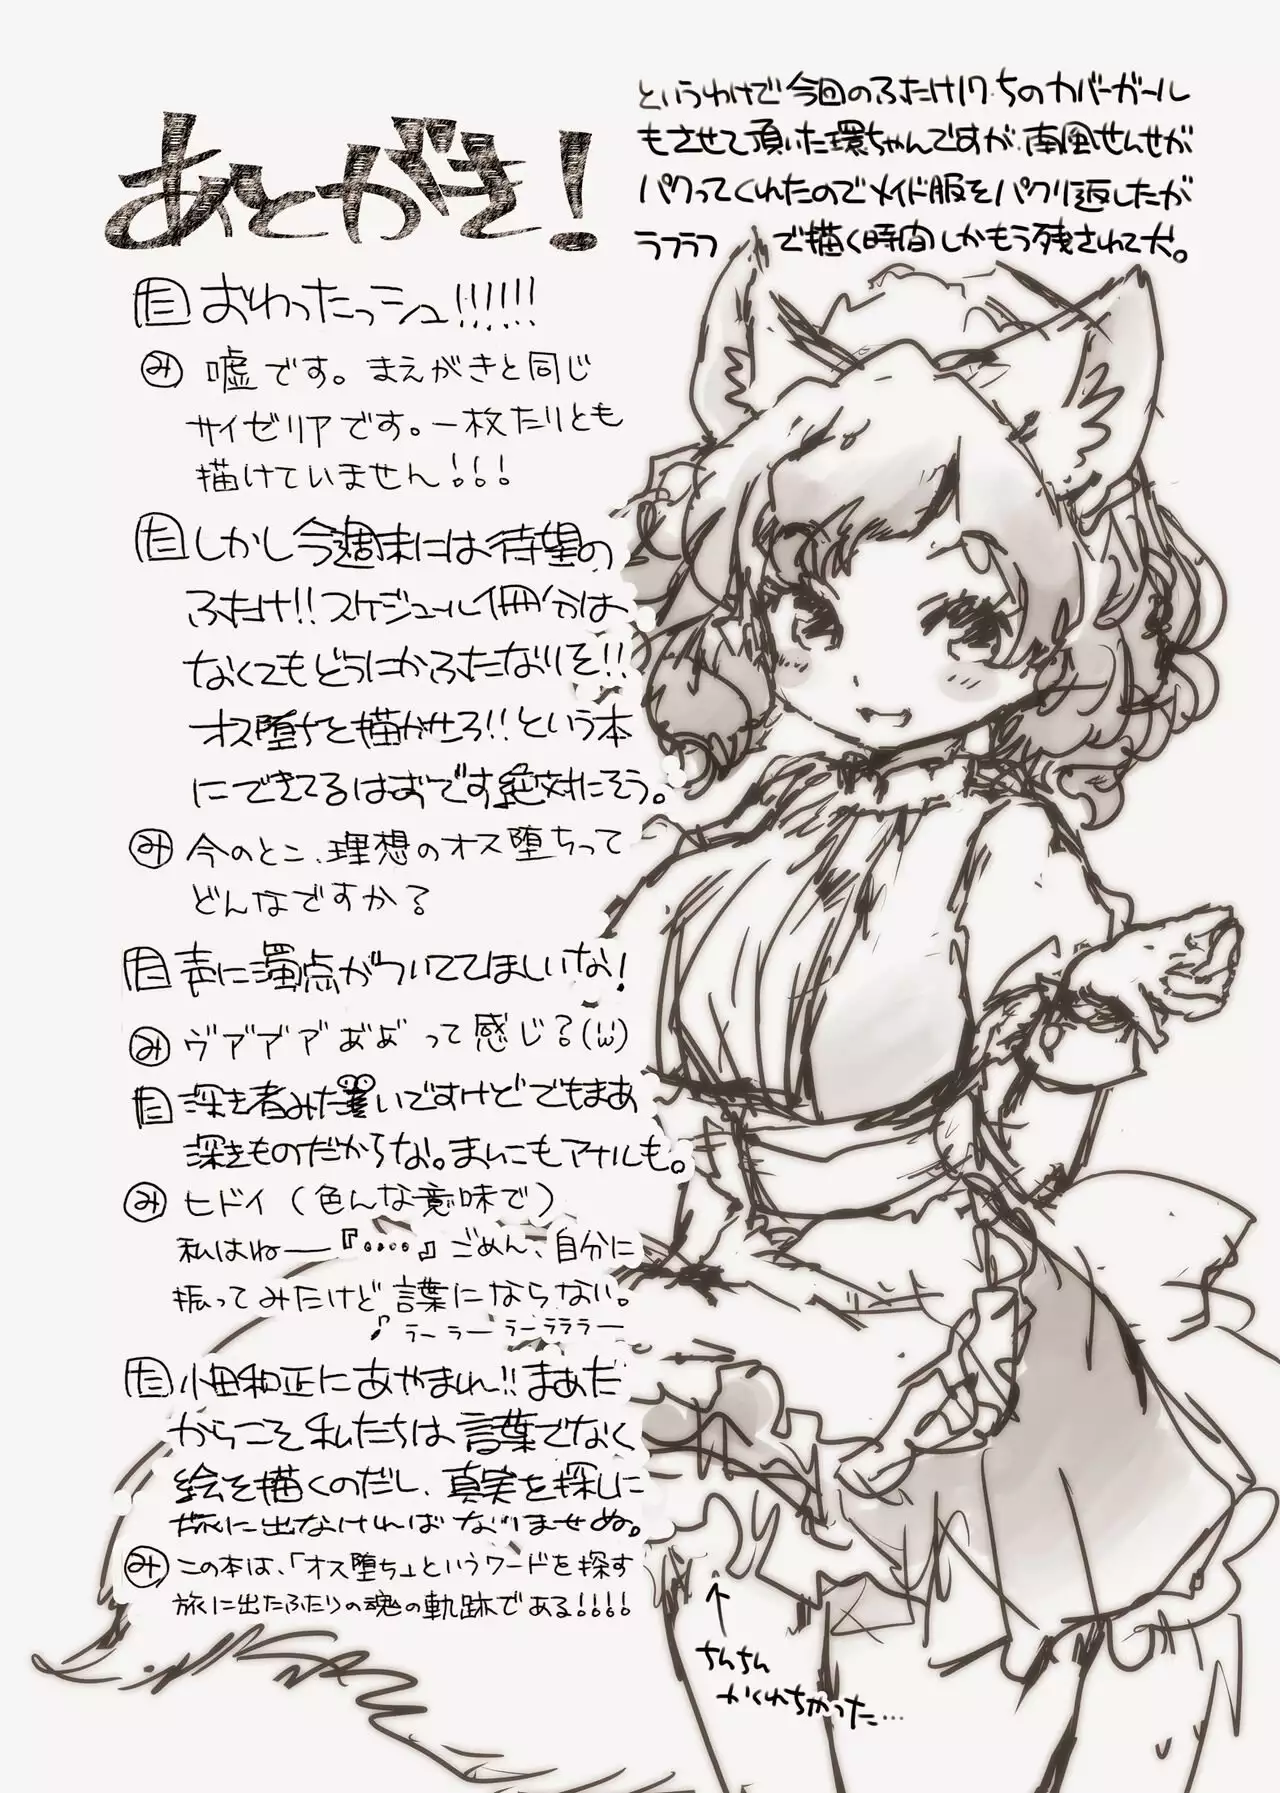 あとがき！
というわけで今回のふたけ17.5のカバーガール
もさせて頂いた環ちゃんですが、南風せんせが
パクってくれたのでメイド服をパクリ返したが
ラフラフ で描く時間しかもう残されて犬。
た おわったっシュ!!!!!!
み 嘘です。まえがきと同じ
サイゼリアです。一枚たりとも
描けていません!!!
た しかし今週末には待望の
ふたけ!!スケジュール1冊分は
なくてもどうにかふたなりを!!
オス堕ちを描かせろ!!という本
にできてるはおです絶対にそう。
み 今のとこ、理想のオス堕ちって
どんなですか?
た 声に濁点がついててほしいな!
み ヴア゛ア゛ア゛あ゛よ゛って感じ?(;ω;)
た 深き者みた いですけどでもまあ
深きものだからな。まんこもアナルも。
み ヒドイ(色んな意味で)
私はねー『‥‥』ごめん、自分に
振ってみたけど言葉にならない。
♪ラーラーラーラララー
た 小田和正にあやまれ!!まあだ
からこそ私たちは言葉でなく
絵を描くのだし、真実を探しに
旅に出なければなりませぬ。
み この本は、「オス堕ち」というワードを探す
旅に出たふたりの魂の軌跡である!!!!
↑
ちんちん
かくれちゃった…